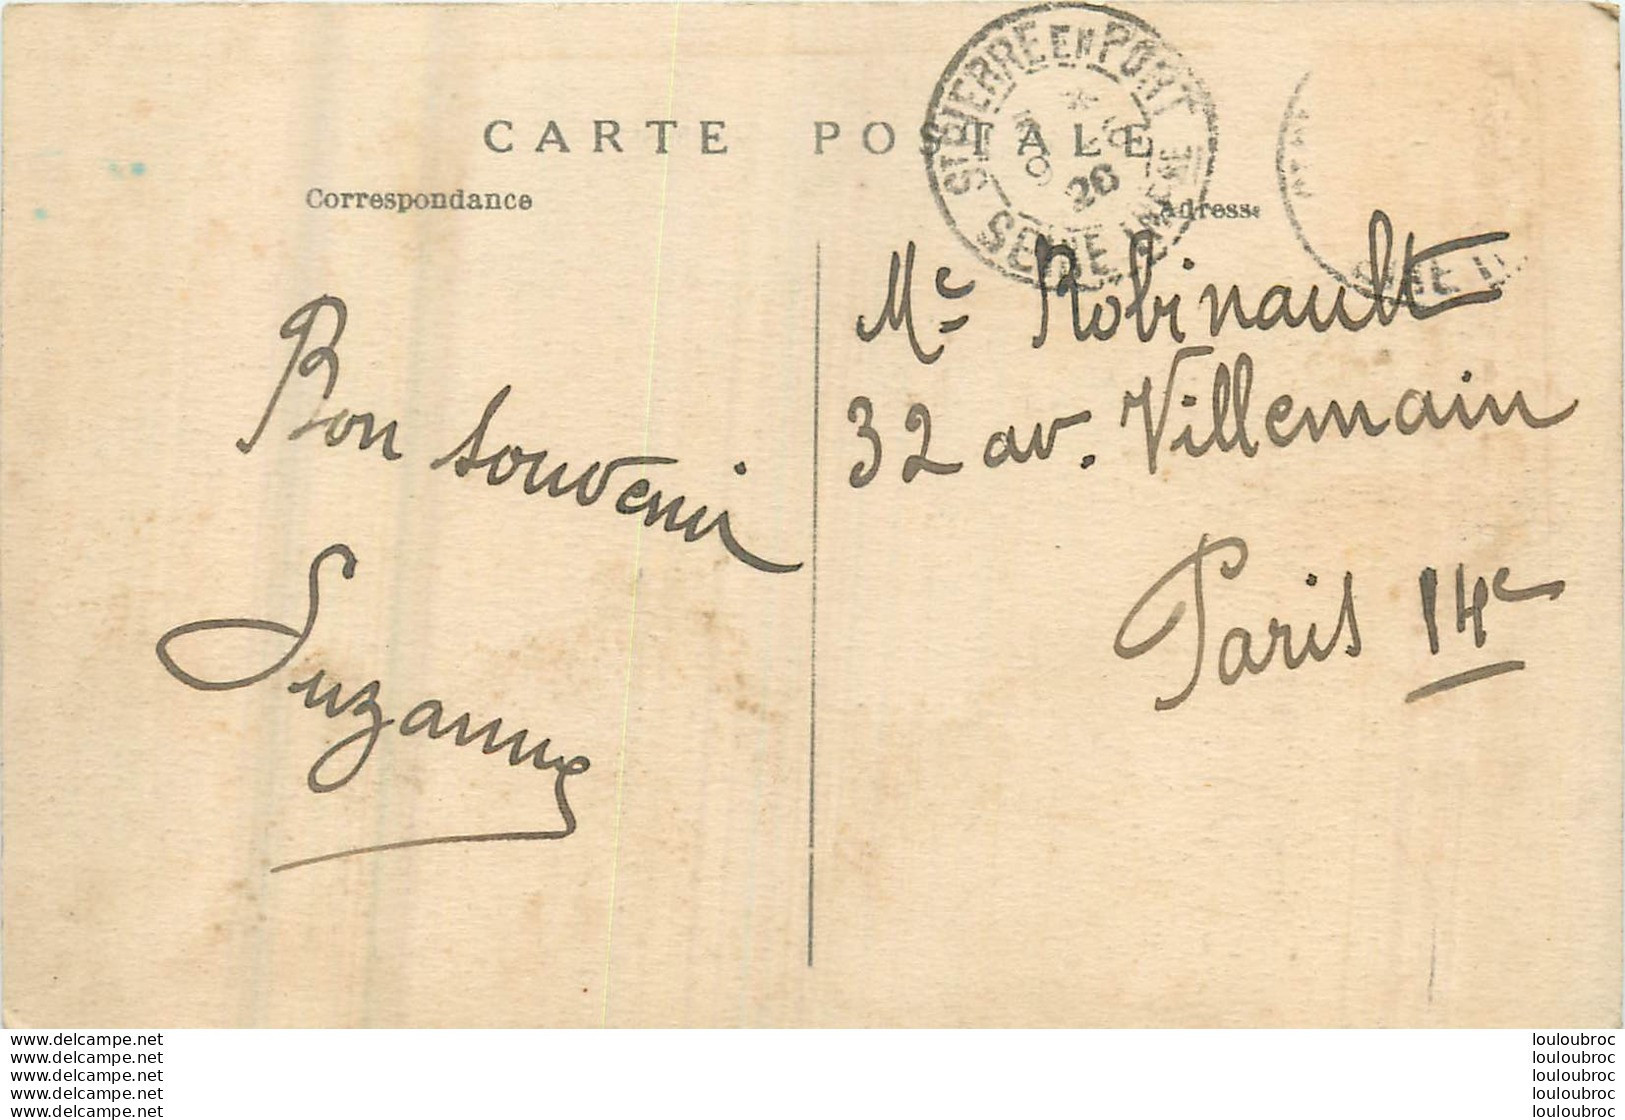 CARTE POSTALE
Correspondance
Adresse
ST PIERRE EN PORT
SEINE INFRE
26
Bon souvenir
Suzanne
Me Robinault
32 av. Villemain
Paris 14e
www.delcampe.net
www.delcampe.net
www.delcampe.net
www.delcampe.net
www.delcampe.net
louloubroc
louloubroc
louloubroc
louloubroc
louloubroc